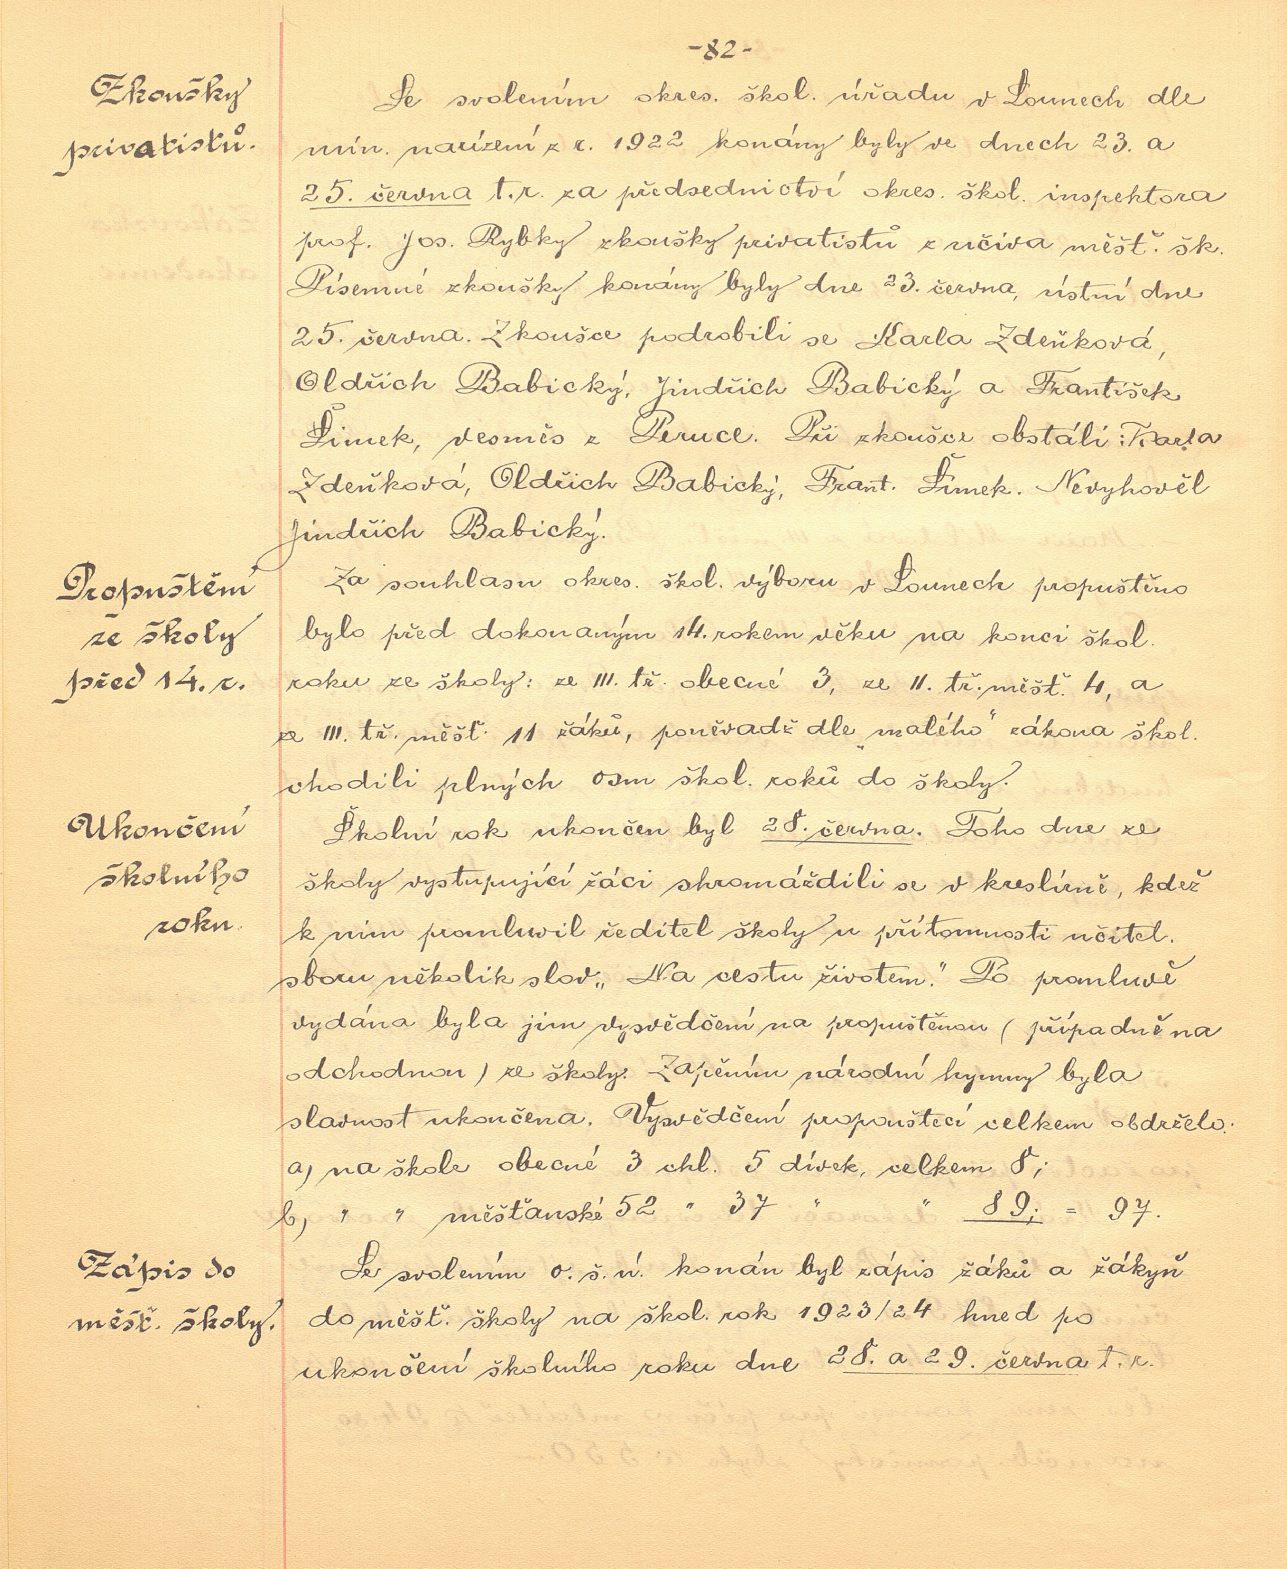 -82-
Zkoušky
privatistů.
Se svolením okres. škol. úřadu v Lounech dle
min. nařízení z r. 1922 konány byly ve dnech 23. a
25. června t.r. za předsednictví okres. škol. inspektora
prof. Jos. Rybky zkoušky privatistů z učiva měšť. šk.
Písemné zkoušky konány byly dne 23. června, ústní dne
25. června. Zkoušce podrobili se Karla Zdeňková,
Oldřich Babický, Jindřich Babický a František
Šimek, vesměs z Peruce. Při zkoušce obstáli: Karla
Zdeňková, Oldřich Babický, Frant. Šimek. Nevyhověl
Jindřich Babický.
Propuštění
ze školy
před 14. r.
Za souhlasu okres. škol. výboru v Lounech propuštěno
bylo před dokonaným 14. rokem věku na konci škol.
roku ze školy: ze III. tř. obecné 3, ze II. tř. měšť. 4, a
ze III. tř. měšť. 11 žáků, poněvadž dle „malého“ zákona škol.
chodili plných osm škol. roků do školy.
Ukončení
školního
roku.
Školní rok ukončen byl 28. června. Toho dne ze
školy vystupující žáci shromáždili se v kreslírně, kdež
k nim promluvil ředitel školy u přítomnosti učitel.
sboru několik slov „Na cestu životem.“ Po promluvě
vydána byla jim vysvědčení na propuštěnou (případně na
odchodnou) ze školy. Zapěním národní hymny byla
slavnost ukončena. Vysvědčení propouštecí celkem obdrželo:
a) na škole obecné 3 chl. 5 dívek, celkem 8;
b) " " měšťanské 52 " 37 " " 89; = 97.
Zápis do
měšť. školy.
Se svolením o. š. ú. konán byl zápis žáků a žákyň
do měšť. školy na škol. rok 1923/24 hned po
ukončení školního roku dne 28. a 29. června t. r.